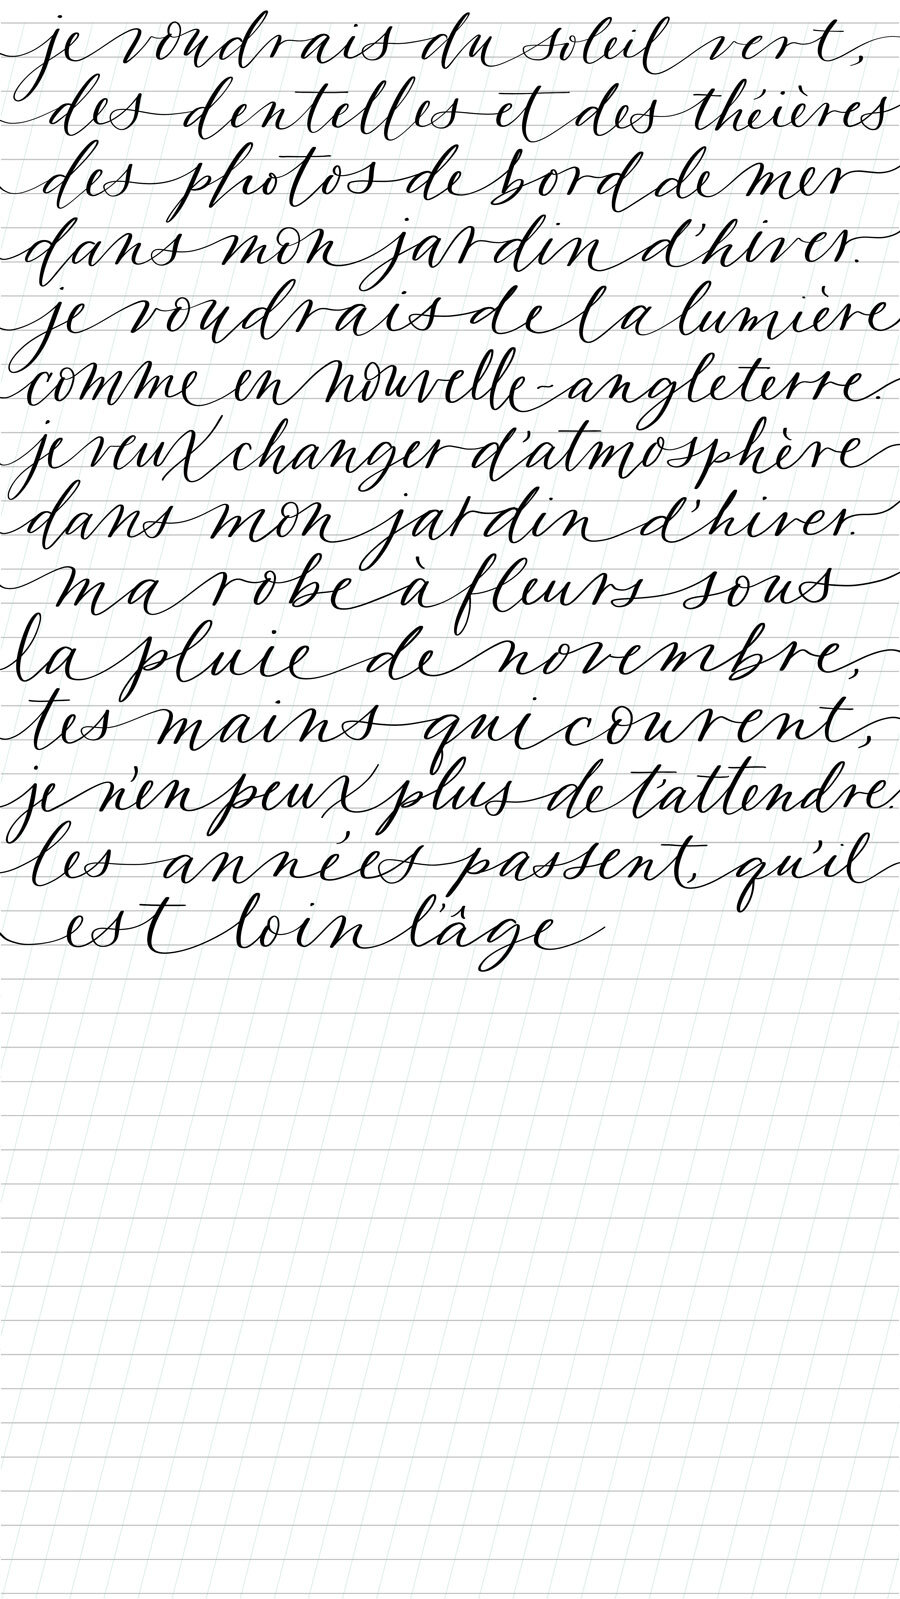 je voudrais du soleil vert,
des dentelles et des théières
des photos de bord de mer
dans mon jardin d'hiver.
je voudrais de la lumière
comme en nouvelle-angleterre.
je veux changer d'atmosphère
dans mon jardin d'hiver.
ma robe à fleurs sous
la pluie de novembre,
tes mains qui courent,
je n'en peux plus de t'attendre.
les années passent, qu'il
est loin l'âge